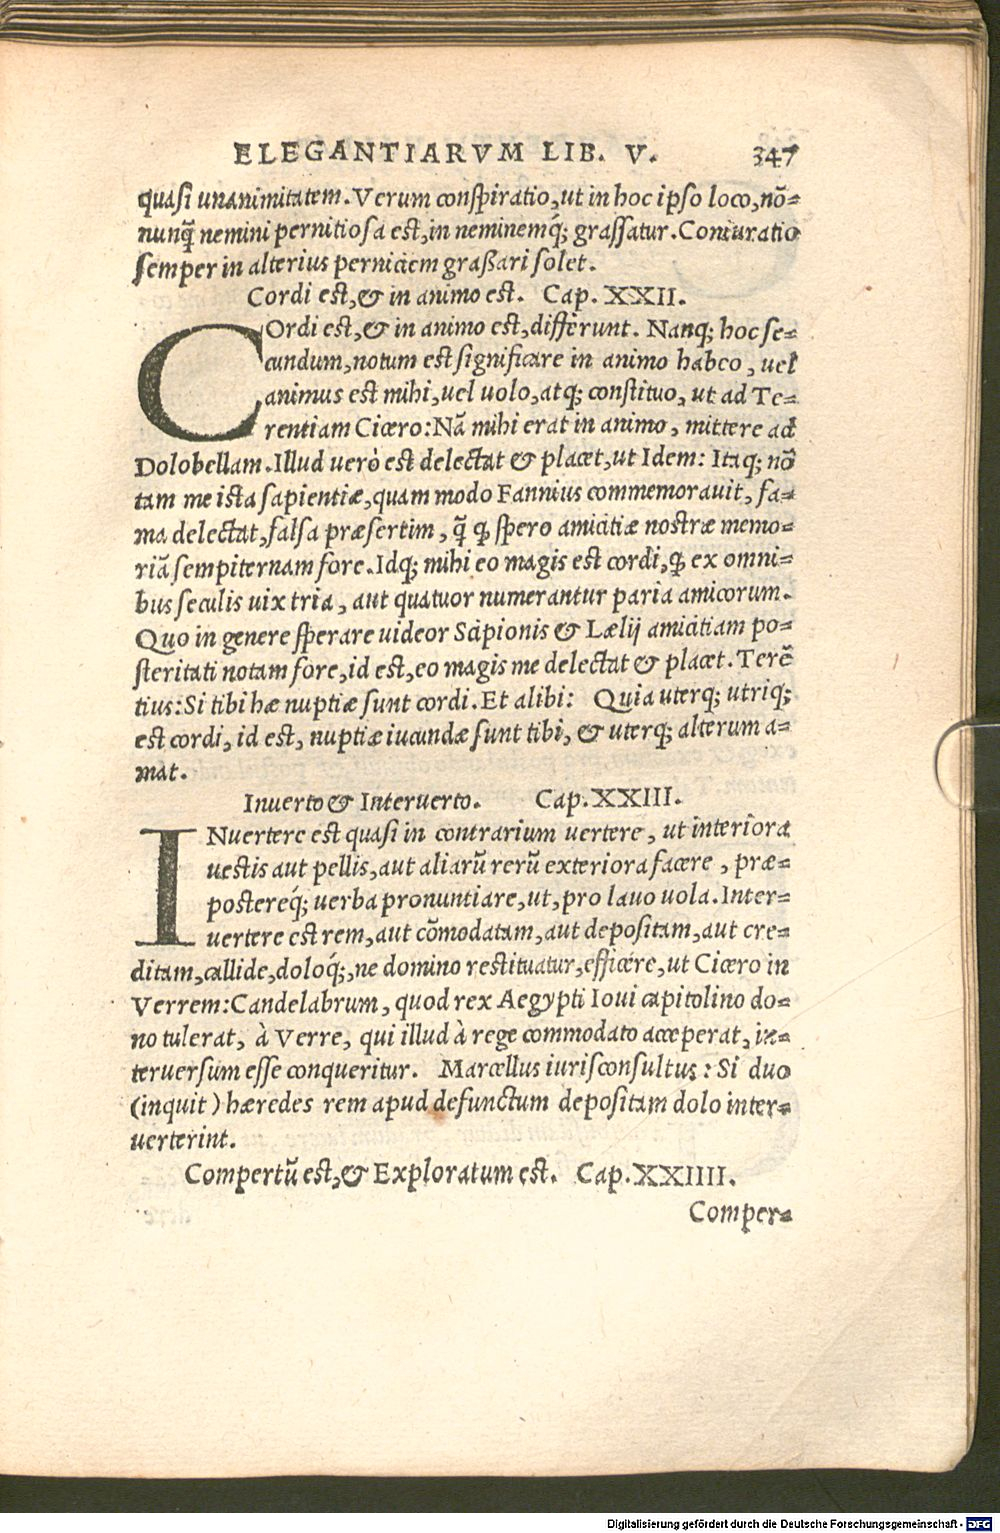 ELEGANTIARVM LIB. V. 347
quasi unanimitatem. Verum conspiratio, ut in hoc ipso loco, nõ=
nunq̃ nemini pernitiosa est, in neminemq́; grassatur. Coniuratio
semper in alterius perniciem graßari solet.
Cordi est, & in animo est. Cap. XXII.
COrdi est, & in animo est, differunt. Nanq; hoc se=
cundum, notum est significare in animo habeo, uel
animus est mihi, uel uolo, atq; constituo, ut ad Te=
rentiam Cicero: Nã mihi erat in animo, mittere ad
Dolobellam. Illud uerò est delectat & placet, ut Idem: Itaq; nõ
tam me ista sapientiæ, quam modo Fannius commemorauit, fa=
ma delectat, falsa præsertim, q̃ ꝙ spero amicitiæ nostræ memo=
riã sempiternam fore. Idq; mihi eo magis est cordi, ꝙ ex omni=
bus seculis uix tria, aut quatuor numerantur paria amicorum.
Quo in genere sperare uideor Scipionis & Lælij amicitiam po=
steritati notam fore, id est, eo magis me delectat & placet. Terẽ
tius: Si tibi hæ nuptiæ sunt cordi. Et alibi: Quia uterq; utriq;
est cordi, id est, nuptiæ iucundæ sunt tibi, & uterq; alterum a=
mat.
Inuerto & Interuerto. Cap. XXIII.
INuertere est quasi in contrarium uertere, ut interiora
uestis aut pellis, aut aliarũ rerũ exteriora facere, præ=
postereq́; uerba pronuntiare, ut, pro lauo uola. Inter=
uertere est rem, aut cõmodatam, aut depositam, aut cre=
ditam, callide, doloq́;, ne domino restituatur, efficere, ut Cicero in
Verrem: Candelabrum, quod rex Aegypti Ioui capitolino do=
no tulerat, à Verre, qui illud à rege commodato acceperat, in=
teruersum esse conqueritur. Marcellus iurisconsultus: Si duo
(inquit) hæredes rem apud defunctum depositam dolo inter=
uerterint.
Compertũ est, & Exploratum est. Cap. XXIIII.
Comper=
Digitalisierung gefördert durch die Deutsche Forschungsgemeinschaft - DFG